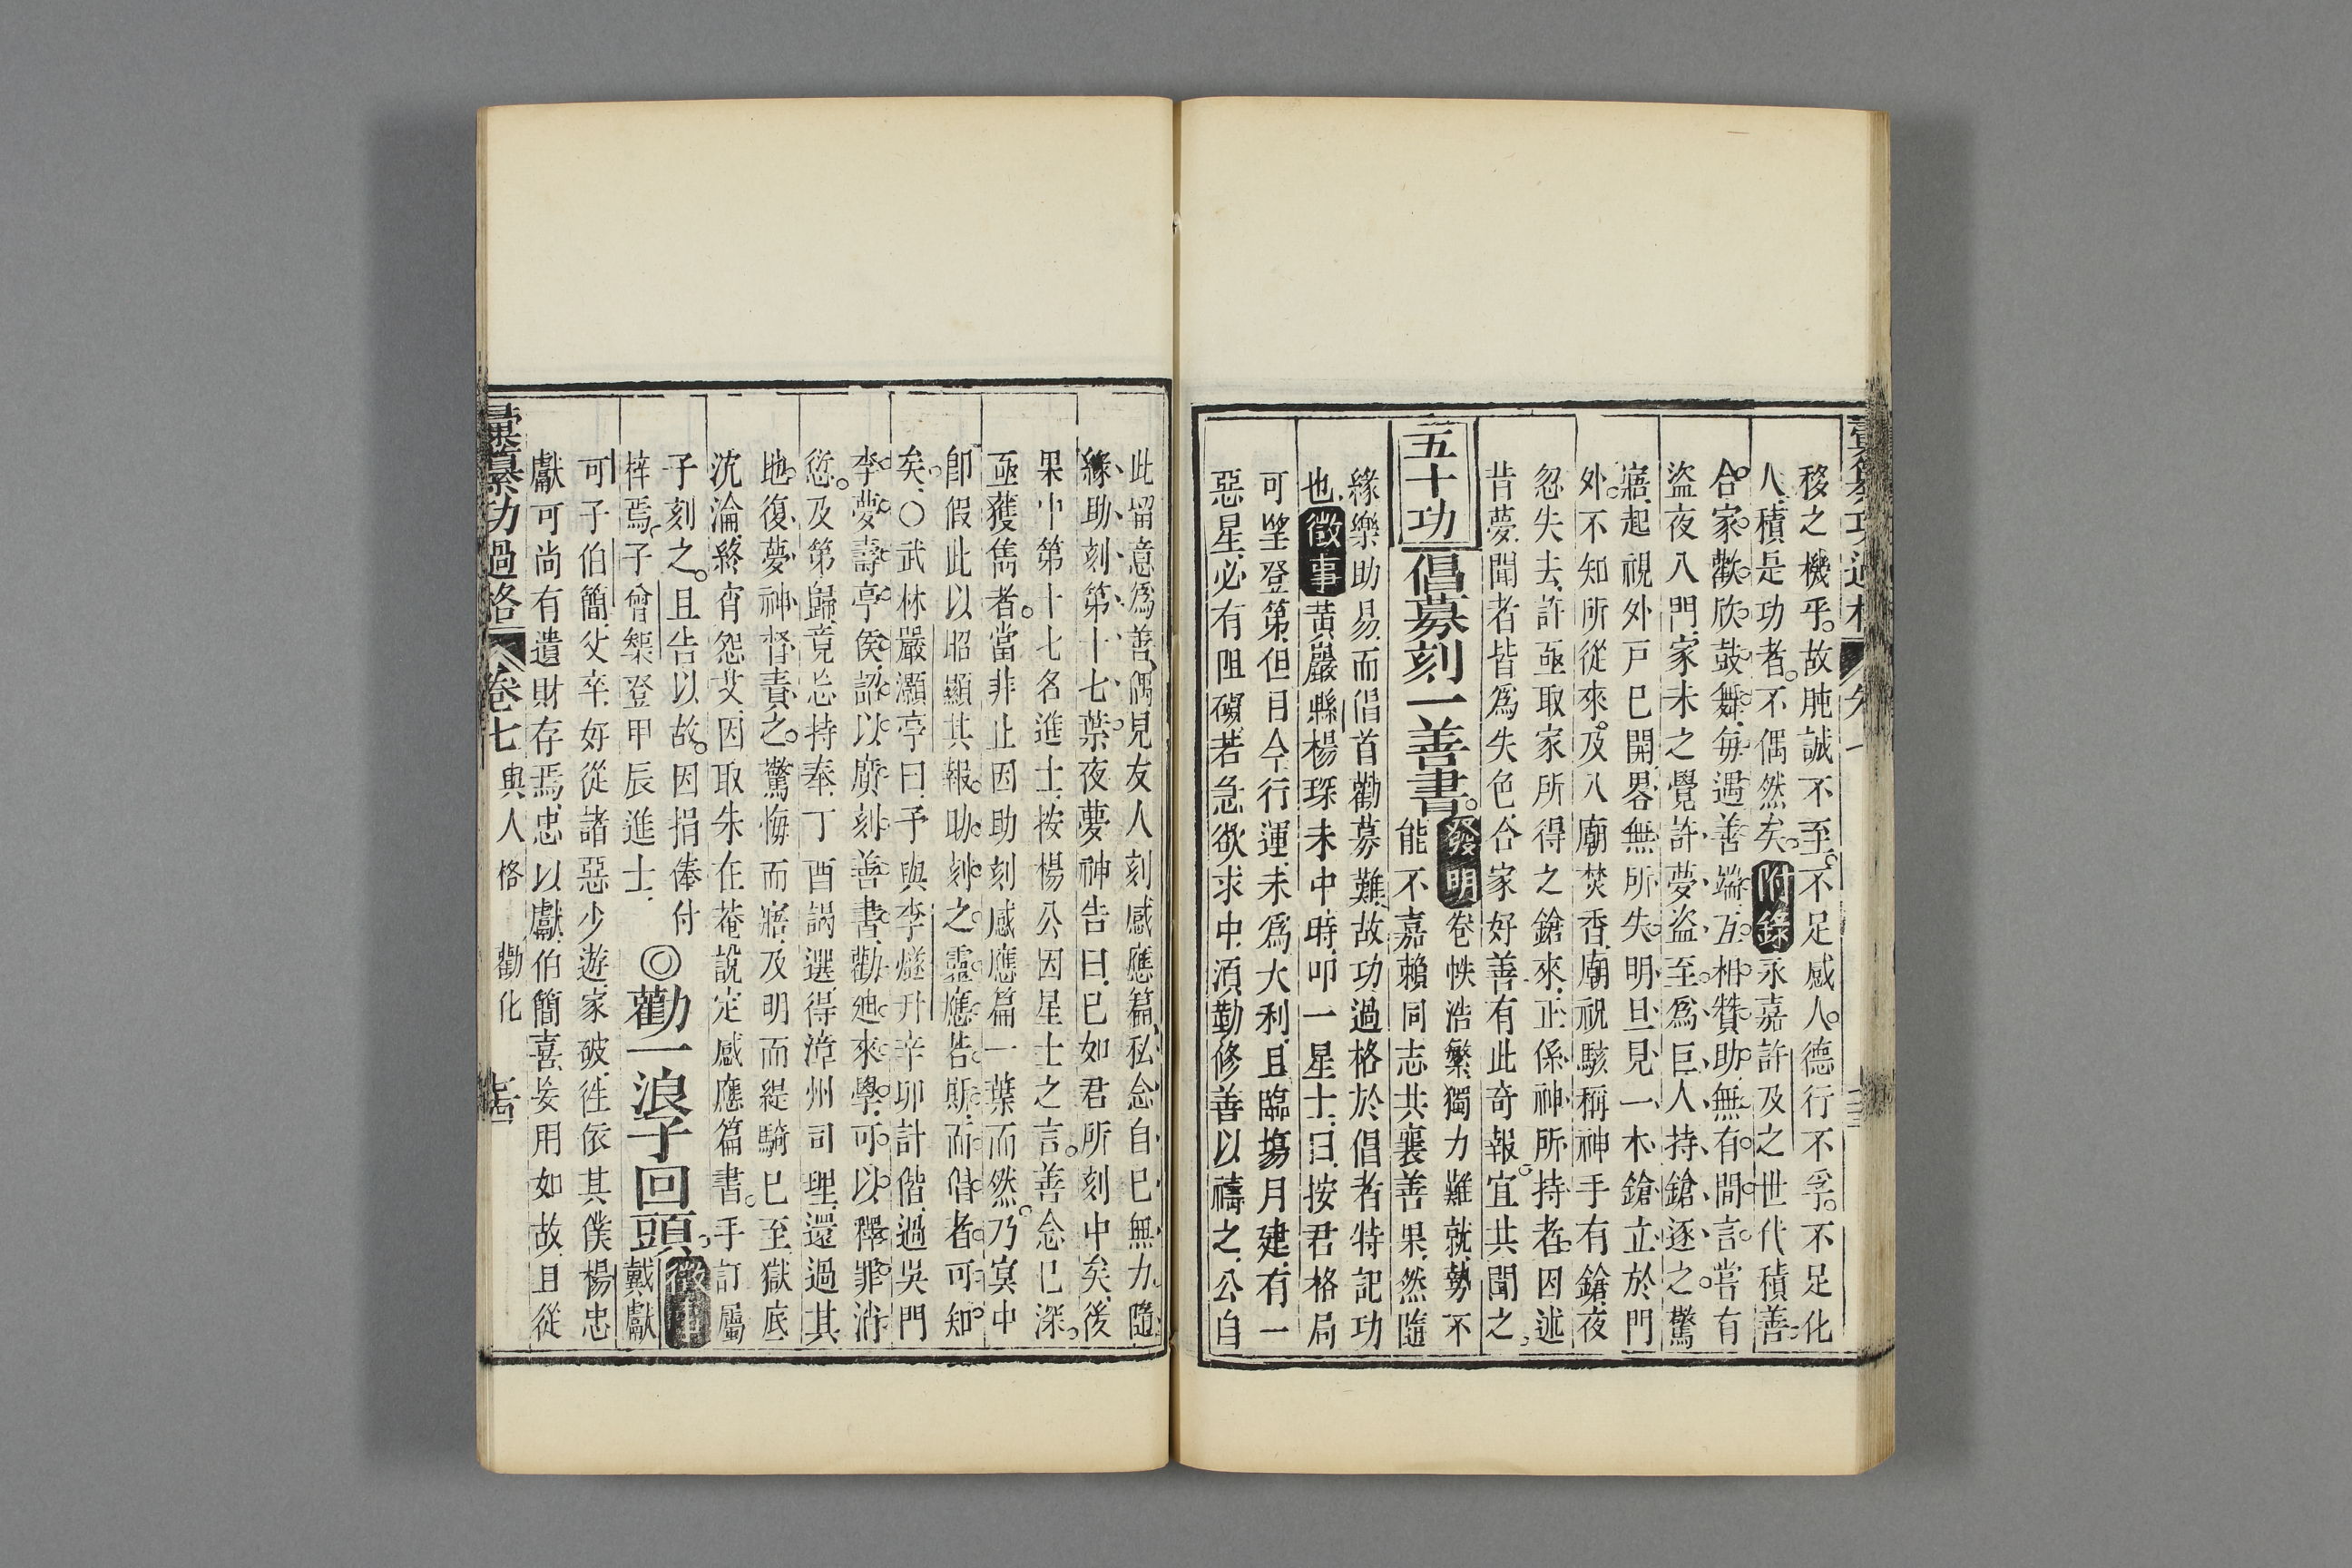 彙纂功過格 卷七
移之機乎。故肫誠不至。不足感人。德行不孚。不足化
人。積是功者。不偶然矣。附錄永嘉許及之世代積善
合家歡欣鼓舞。每遇善端。互相贊助。無有間言。嘗有
盜夜入門。家未之覺。許夢盜至。爲巨人持鎗逐之。驚
寤。起視外戸已開。畧無所失。明旦見一木鎗立於門
外。不知所從來。及入廟焚香。廟祝駭稱神手有鎗。夜
忽失去。許亟取家所得之鎗來。正係神所持者。因述
昔夢。聞者皆爲失色。合家好善有此奇報。宜共聞之。
五十功 倡募刻一善書。發明卷帙浩繁獨力難就。勢不
能不嘉賴同志共襄善果。然隨
緣樂助易。而倡首勸募難。故功過格於倡者特記功
也。徵事黃巖縣楊琛未中時。叩一星士。曰。按君格局
可望登第。但目今行運。未爲大利。且臨塲月建。有一
惡星。必有阻礙。若急欲求中。須勤修善以禱之。公自
此留意爲善。偶見友人刻感應篇。私念自已無力。隨
緣助刻第十七葉。夜夢神告曰。已如君所刻中矣。後
果中第十七名進士。按楊公因星士之言。善念已深。
亟獲雋者。當非止因助刻感應篇一葉而然。乃冥中
卽假此以昭顯其報。助刻之靈應若斯。而倡者可知
矣。○武林嚴灝亭曰。予與李燧升辛卯計偕。過吳門
李夢壽亭侯。詔以廣刻善書。勸廸來學。可以釋罪消
愆。及第歸。竟忘持奉。丁酉謁選。得漳州司理。還過其
地。復夢神督責之。驚悔而寤。及明而緹騎已至。獄底
沈淪。終宵怨艾。因取朱在菴說定感應篇書。手訂屬
予刻之。且告以故。因捐俸付
梓焉。子曾榘登甲辰進士。
◎勸一浪子回頭。徵事戴獻
可子伯簡。父卒。好從諸惡少遊。家破。徃依其僕楊忠
獻可尚有遺財存焉。忠以獻。伯簡喜。妄用如故。且從
彙纂功過格 卷七 與人格 勸化